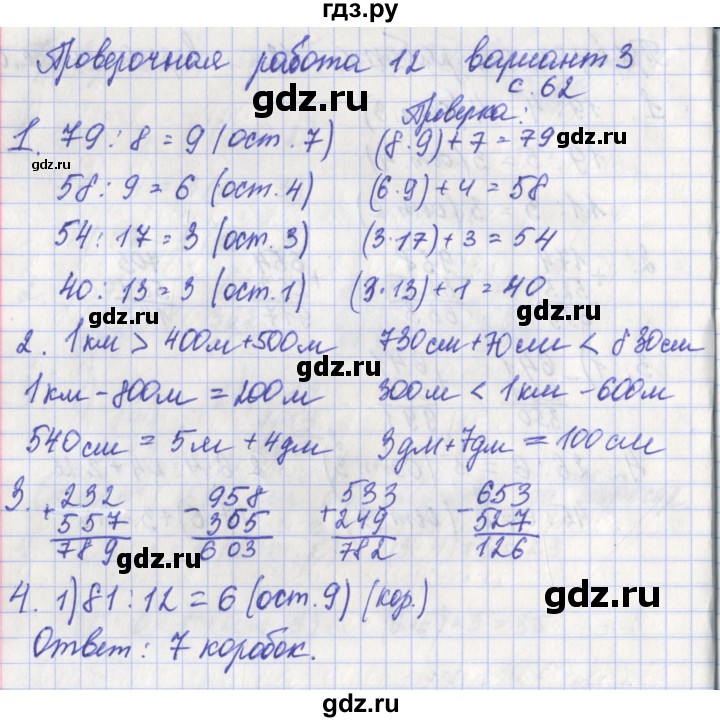 гдз.ру
Проверочная работа 12 вариант 3
с. 62
gdz.ru gdz.ru
Проверка:
1. 79 : 8 = 9 (ост. 7) (8·9) + 7 = 79
gdz.ru
58 : 9 = 6 (ост. 4) (6·9) + 4 = 58
54 : 17 = 3 (ост. 3) (3·17) + 3 = 54
gdz.ru
40 : 13 = 3 (ост. 1) (3·13) + 1 = 40
2. 1 км > 400м + 500м 730см + 70см < 830см
gdz.ru
1 км - 800м = 200м 300м < 1 км - 600м
540см = 5м + 4дм 3дм + 7дм = 100см
gdz.ru
3. + 232 - 958 + 533 - 653
557 355 249 527
789 603 782 126
4. 1) 81 : 12 = 6 (ост. 9) (кор.)
gdz.ru gdz.ru
Ответ: 7 коробок.
gdz.ru
gdz.ru